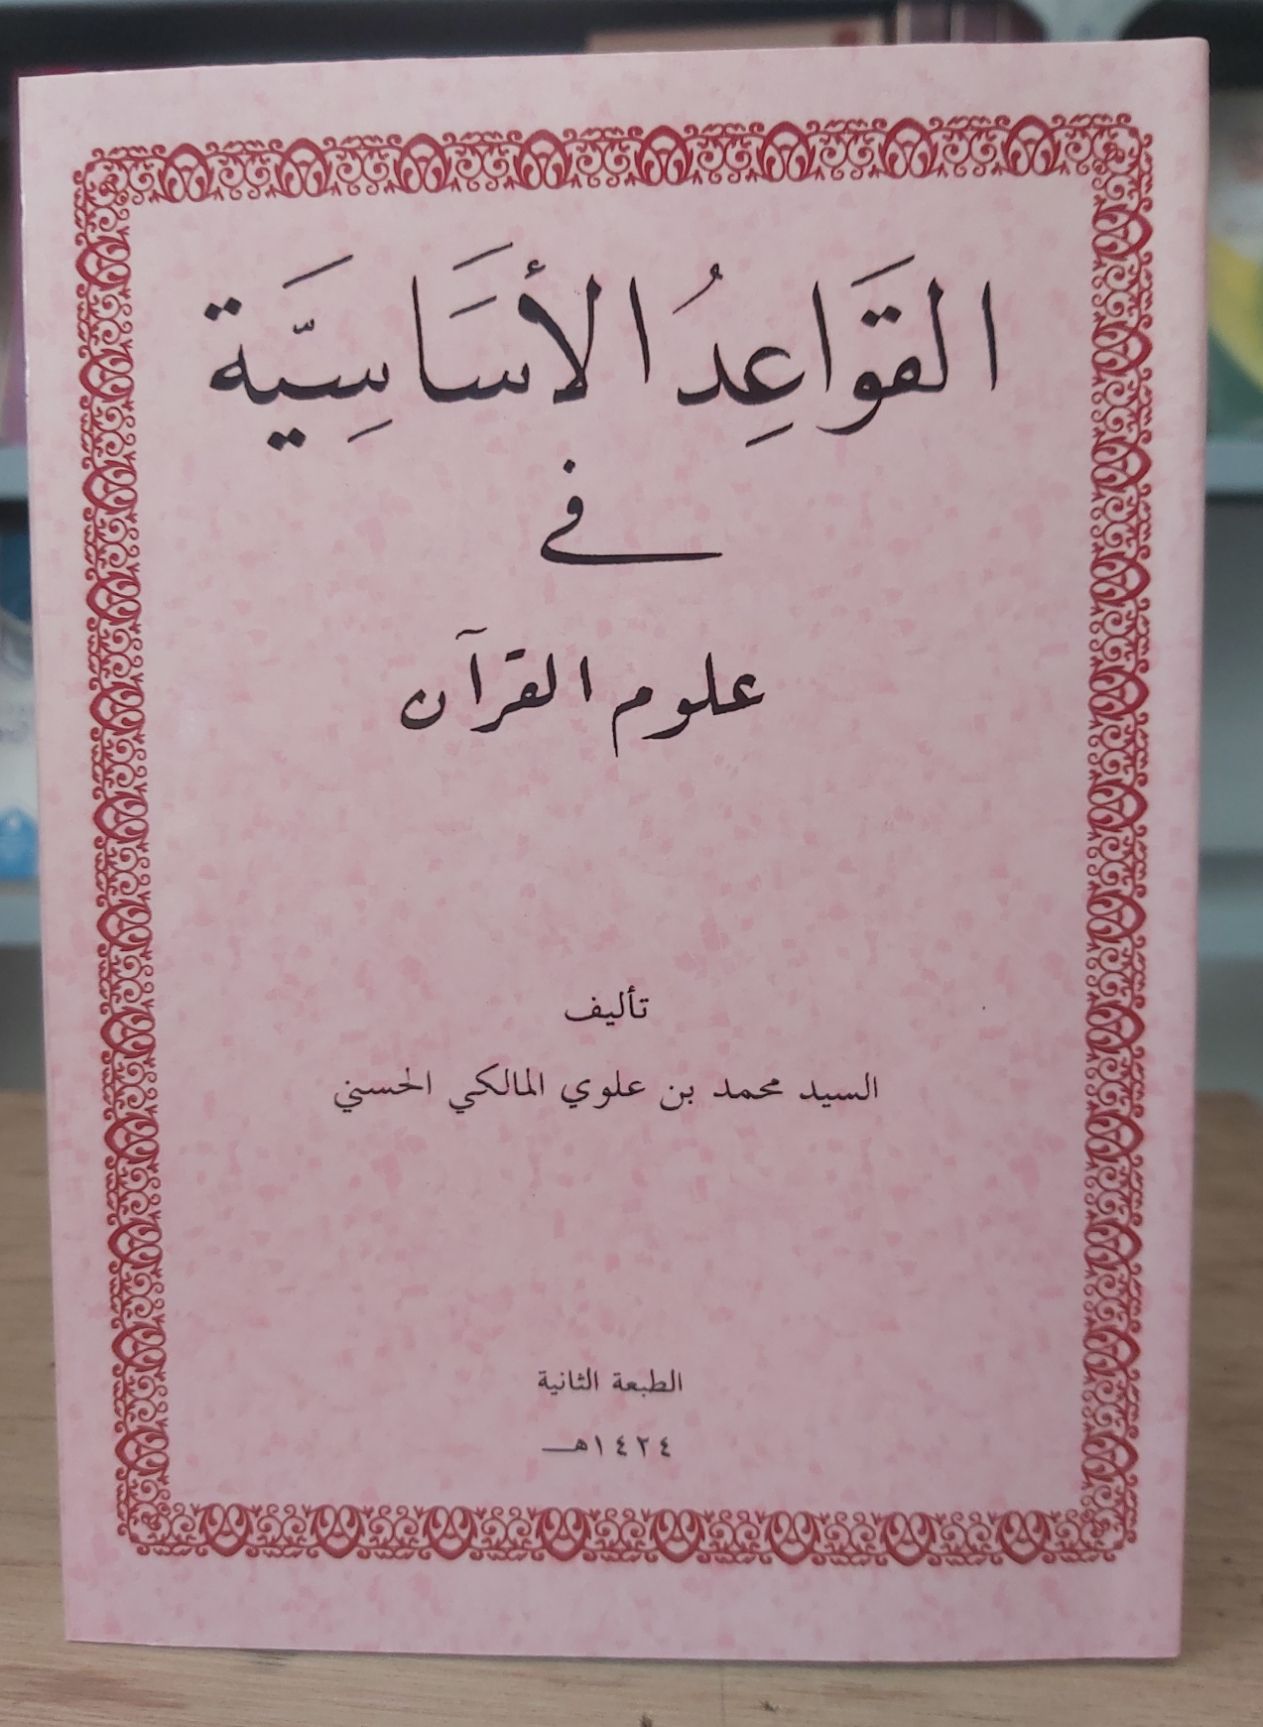 القَوَاعِدُ الأسَاسِيَّة
في
علوم القرآن
تأليف
السيد محمد بن علوي المالكي الحسني
الطبعة الثانية
١٤٢٤هـ